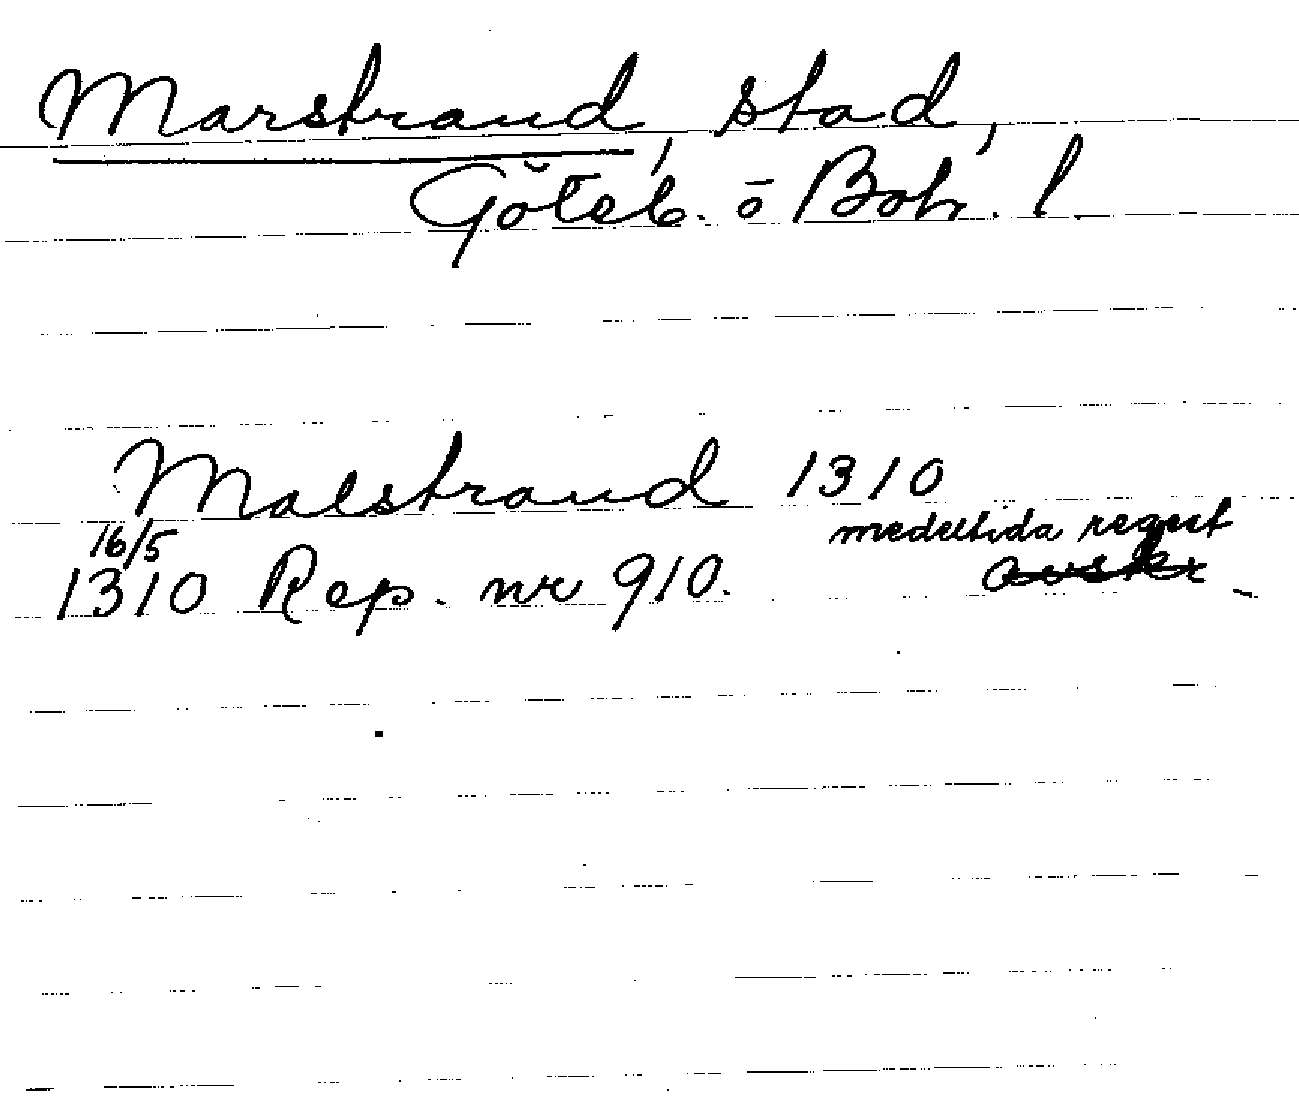 Marstrand, stad,
Göteb. o Boh. l.
Malstrand 1310
medeltida regest
16/5
1310 Rep. nr 910.